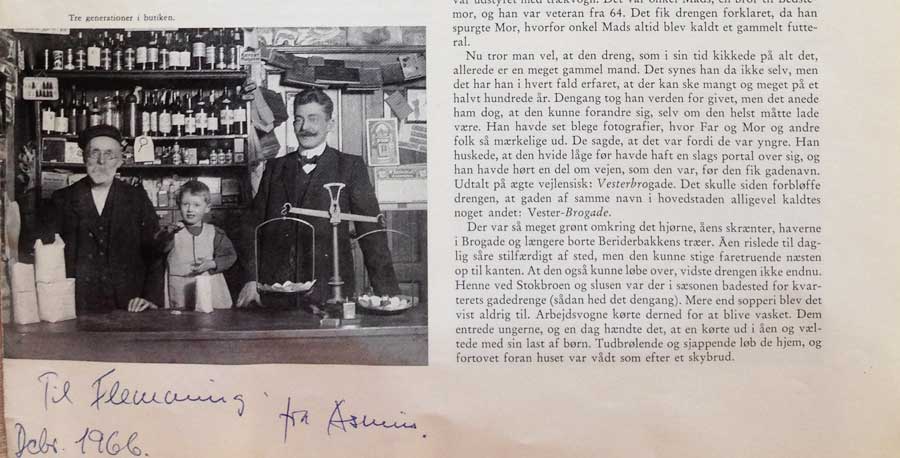 Tre generationer i butiken.
var udstyret med trækvogn. Det var onkel Mads, en bror til bedste-
mor, og han var veteran fra 64. Det fik drengen forklaret, da han
spurgte Mor, hvorfor onkel Mads altid blev kaldt et gammelt futte-
ral.
Nu tror man vel, at den dreng, som i sin tid kikkede på alt det,
allerede er en meget gammel mand. Det synes han da ikke selv, men
det har han i hvert fald erfaret, at der kan ske mangt og meget på et
halvt hundrede år. Dengang tog han verden for givet, men det anede
ham dog, at den kunne forandre sig, selv om den helst måtte lade
være. Han havde set blege fotografier, hvor Far og Mor og andre
folk så mærkelige ud. De sagde, at det var fordi de var yngre. Han
huskede, at den hvide låge før havde haft en slags portal over sig, og
han havde hørt en del om vejen, som den var, før den fik gadenavn.
Udtalt på ægte vejlensisk: Vesterbrogade. Det skulle siden forbløffe
drengen, at gaden af samme navn i hovedstaden alligevel kaldtes
noget andet: Vester-Brogade.
Der var så meget grønt omkring det hjørne, åens skrænter, haverne
i Brogade og længere borte Beriderbakkens træer. Åen rislede til dag-
lig såre stilfærdigt af sted, men den kunne stige faretruende næsten
op til kanten. At den også kunne løbe over, vidste drengen ikke endnu.
Henne ved Stokbroen og slusen var der i sæsonen badested for kvar-
terets gadedrenge (sådan hed det dengang). Mere end sopperi blev det
vist aldrig til. Arbejdsvogne kørte derned for at blive vasket. Dem
entrede ungerne, og en dag hændte det, at en kørte ud i åen og væl-
tede med sin last af børn. Tudbrølende og sjappende løb de hjem, og
fortovet foran huset var vådt som efter et skybrud.
Til Flemming
fra
Dcbr. 1966.